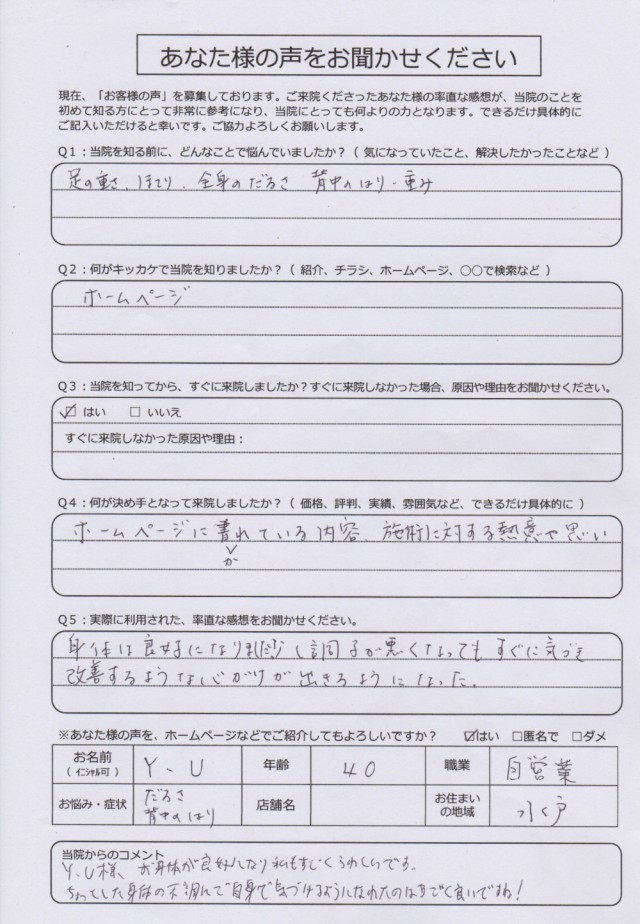 あなた様の声をお聞かせください
現在、「お客様の声」を募集しております。ご来院くださったあなた様の率直な感想が、当院のことを
初めて知る方にとって非常に参考になり、当院にとっても何よりの力となります。できるだけ具体的に
ご記入いただけると幸いです。ご協力よろしくお願いします。
Q1：当院を知る前に、どんなことで悩んでいましたか？（ 気になっていたこと、解決したかったことなど ）
足の重さ、ほてり、全身のだるさ 背中のはり・重み
Q2：何がキッカケで当院を知りましたか？（ 紹介、チラシ、ホームページ、○○で検索など ）
ホームページ
Q3：当院を知ってから、すぐに来院しましたか？すぐに来院しなかった場合、原因や理由をお聞かせください。
☑ はい □ いいえ
すぐに来院しなかった原因や理由：
Q4：何が決め手となって来院しましたか？（ 価格、評判、実績、雰囲気など、できるだけ具体的に ）
ホームページに書れている内容、施術に対する熱意や思い
か
Q5：実際に利用された、率直な感想をお聞かせください。
身体は良好になりました少し調子が悪くなってもすぐに気づき
改善するような心がけが出きるようになった。
※あなた様の声を、ホームページなどでご紹介してもよろしいですか？ ☑はい □匿名で □ダメ
お名前 Y、U 年齢 40 職業 自営業
（ ｲﾆｼｬﾙ可 ）
お悩み・症状 だるさ 店舗名 お住まい 水戸
背中のはり の地域
当院からのコメント
Y、U様、お身体が良好になり私もすごくうれしいです。
ちょっとした身体の不調んで自身で気づけるようになれたのはすごく良いですね！